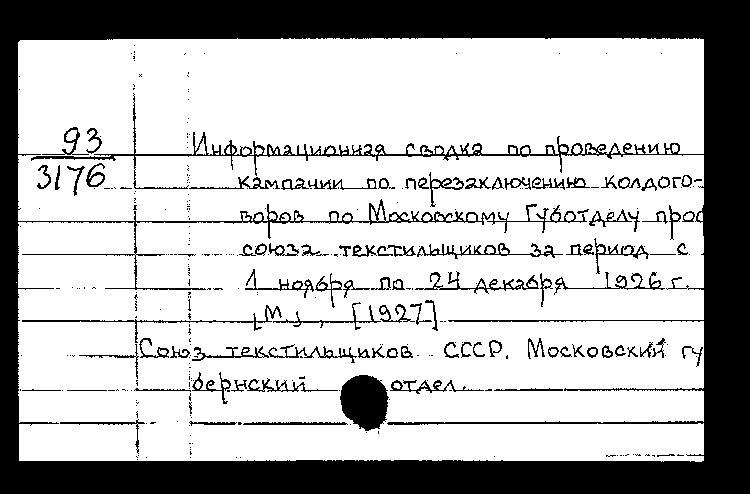 93
3176
Информационная сводка по проведению
кампании по перезаключению колдого-
воров по Московскому Губотделу проф
союза текстильщиков за период с
1 ноября по 24 декабря 1926 г.
[М], [1927]
Союз текстильщиков СССР. Московский гу
бернский отдел.